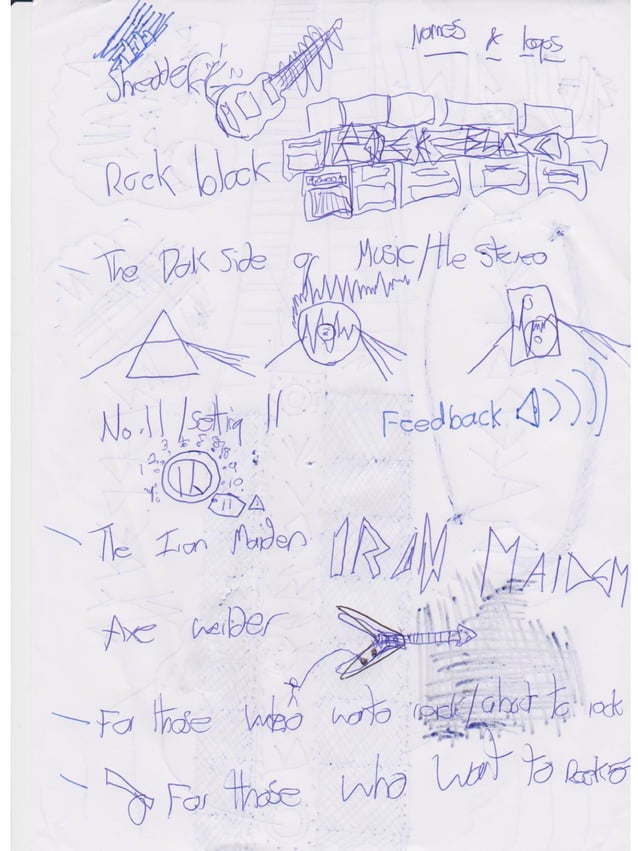 Names & logos
Shredder
Rock block
ROCK BLOCK
The Dark Side of Music/the stereo
No.11/setting 11
Feedback
1 2 3 4 5 6 7 8 9 10
11
11
The Iron Maiden IRON MAIDEN
Axe weilder
For those who want to rock/about to rock
For those who want to Rock